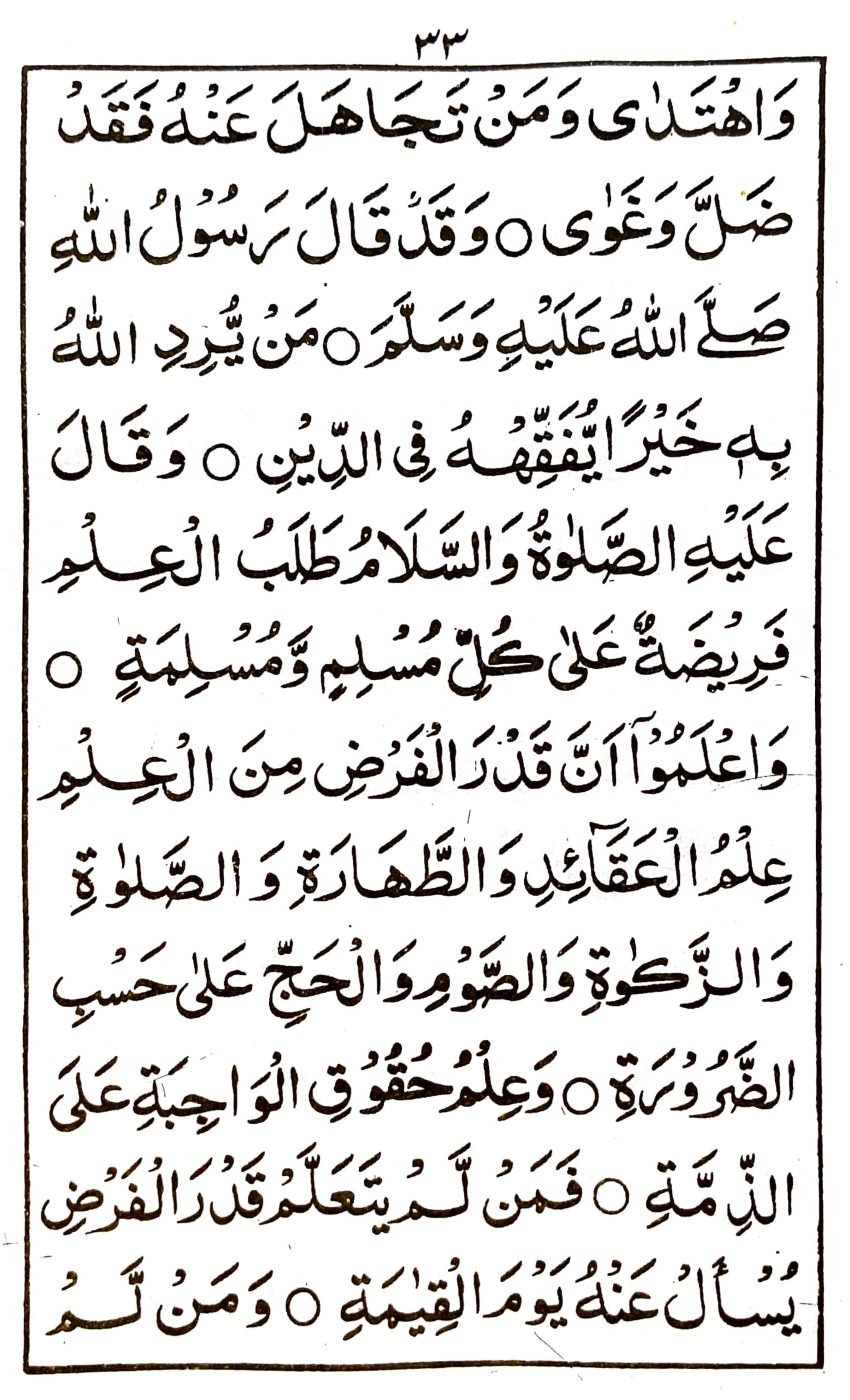 ٣٣
وَاهْتَدٰى وَمَنْ تَجَاهَلَ عَنْهُ فَقَدْ
ضَلَّ وَغَوٰى ○ وَقَدْ قَالَ رَسُوْلُ اللّٰهِ
صَلَّے اللّٰهُ عَلَيْهِ وَسَلَّمَ ○ مَنْ يُّرِدِ اللّٰهُ
بِهٖ خَيْرًا يُّفَقِّهْهُ فِى الدِّيْنِ ○ وَقَالَ
عَلَيْهِ الصَّلٰوةُ وَالسَّلَامُ طَلَبُ الْعِلْمِ
فَرِيْضَةٌ عَلٰى كُلِّ مُسْلِمٍ وَّمُسْلِمَةٍ ○
وَاعْلَمُوْٓا اَنَّ قَدْرَ الْفَرْضِ مِنَ الْعِلْمِ
عِلْمُ الْعَقَآئِدِ وَالطَّهَارَةِ وَالصَّلٰوةِ
وَالزَّكٰوةِ وَالصَّوْمِ وَالْحَجِّ عَلٰى حَسْبِ
الضَّرُوْرَةِ ○ وَعِلْمُ حُقُوْقِ الْوَاجِبَةِ عَلَى
الذِّمَّةِ ○ فَمَنْ لَّمْ يَتَعَلَّمْ قَدْرَ الْفَرْضِ
يُسْأَلْ عَنْهُ يَوْمَ الْقِيٰمَةِ ○ وَمَنْ لَّمْ